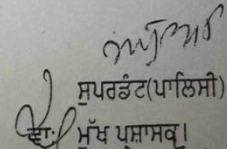 ਸੁਪਰਡੰਟ(ਪਾਲਿਸੀ)
ਵਾ: ਮੁੱਖ ਪ੍ਰਸ਼ਾਸਕ।